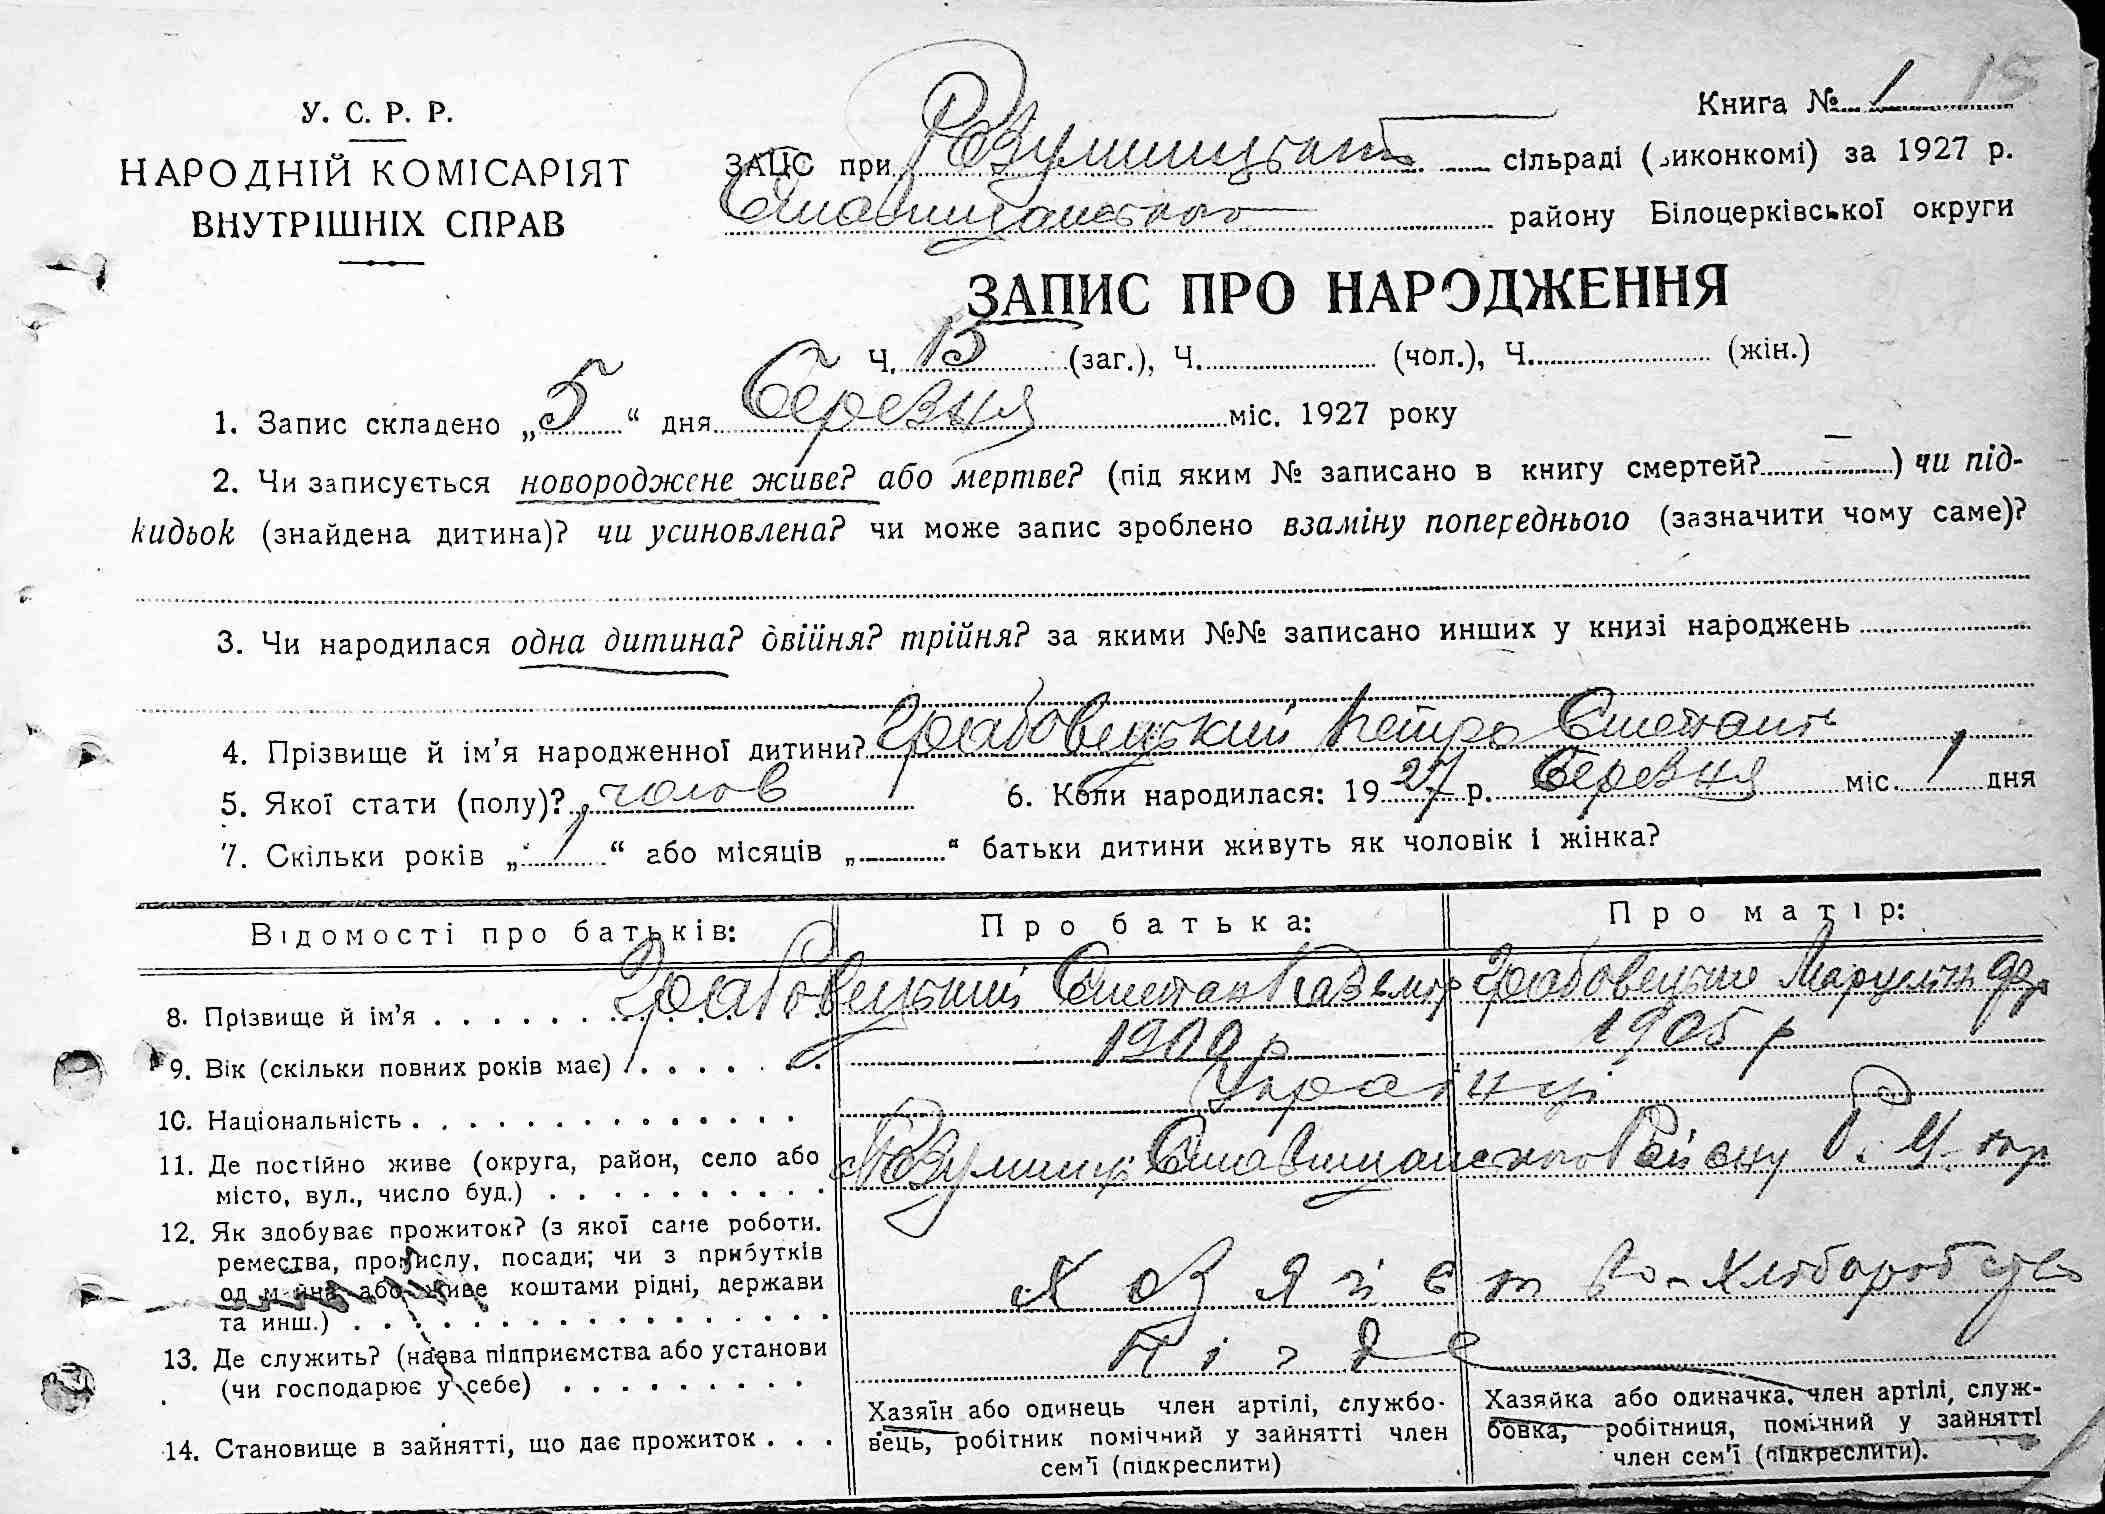 Книга № 1 15
У. С. Р. Р.
НАРОДНІЙ КОМІСАРІЯТ
ВНУТРІШНІХ СПРАВ
ЗАЦС при Розумницькій сільраді (виконкомі) за 1927 р.
Ставищанського району Білоцерківської округи
ЗАПИС ПРО НАРОДЖЕННЯ
Ч. 15 (заг.), Ч. (чол.), Ч. (жін.)
1. Запис складено „5“ дня Серпня міс. 1927 року
2. Чи записується новороджене живе? або мертве? (під яким № записано в книгу смертей? —) чи під-
кидьок (знайдена дитина)? чи усиновлена? чи може запис зроблено взаміну попереднього (зазначити чому саме)?
3. Чи народилася одна дитина? двійня? трійня? за якими №№ записано инших у книзі народжень
4. Прізвище й ім’я народженної дитини? Грабовецький Петро
5. Якої стати (полу)? чолов 6. Коли народилася: 1927 р. міс. 1 дня
7. Скільки років „1“ або місяців „“ батьки дитини живуть як чоловік і жінка?
Відомості про батьків: Про батька: Про матір:
8. Прізвище й ім’я Грабовецький Степан Грабовецька
9. Вік (скільки повних років має) 1900 р 1905 р
10. Національність Українці
11. Де постійно живе (округа, район, село або
місто, вул., число буд.) Ставищанського Району Б. Ц. окр
12. Як здобуває прожиток? (з якої саме роботи.
ремества, промислу, посади; чи з прибутків
од майна або живе коштами рідні, держави
та инш.) Хозяйство - Хлібороб ство
13. Де служить? (назва підприємства або установи
(чи господарює у себе) нігде
14. Становище в зайнятті, що дає прожиток
Хазяїн або одинець член артілі, службо-
вець, робітник помічний у зайнятті член
сем'ї (підкреслити)
Хазяйка або одиначка, член артілі, служ-
бовка, робітниця, помічний у зайнятті
член сем'ї (підкреслити).